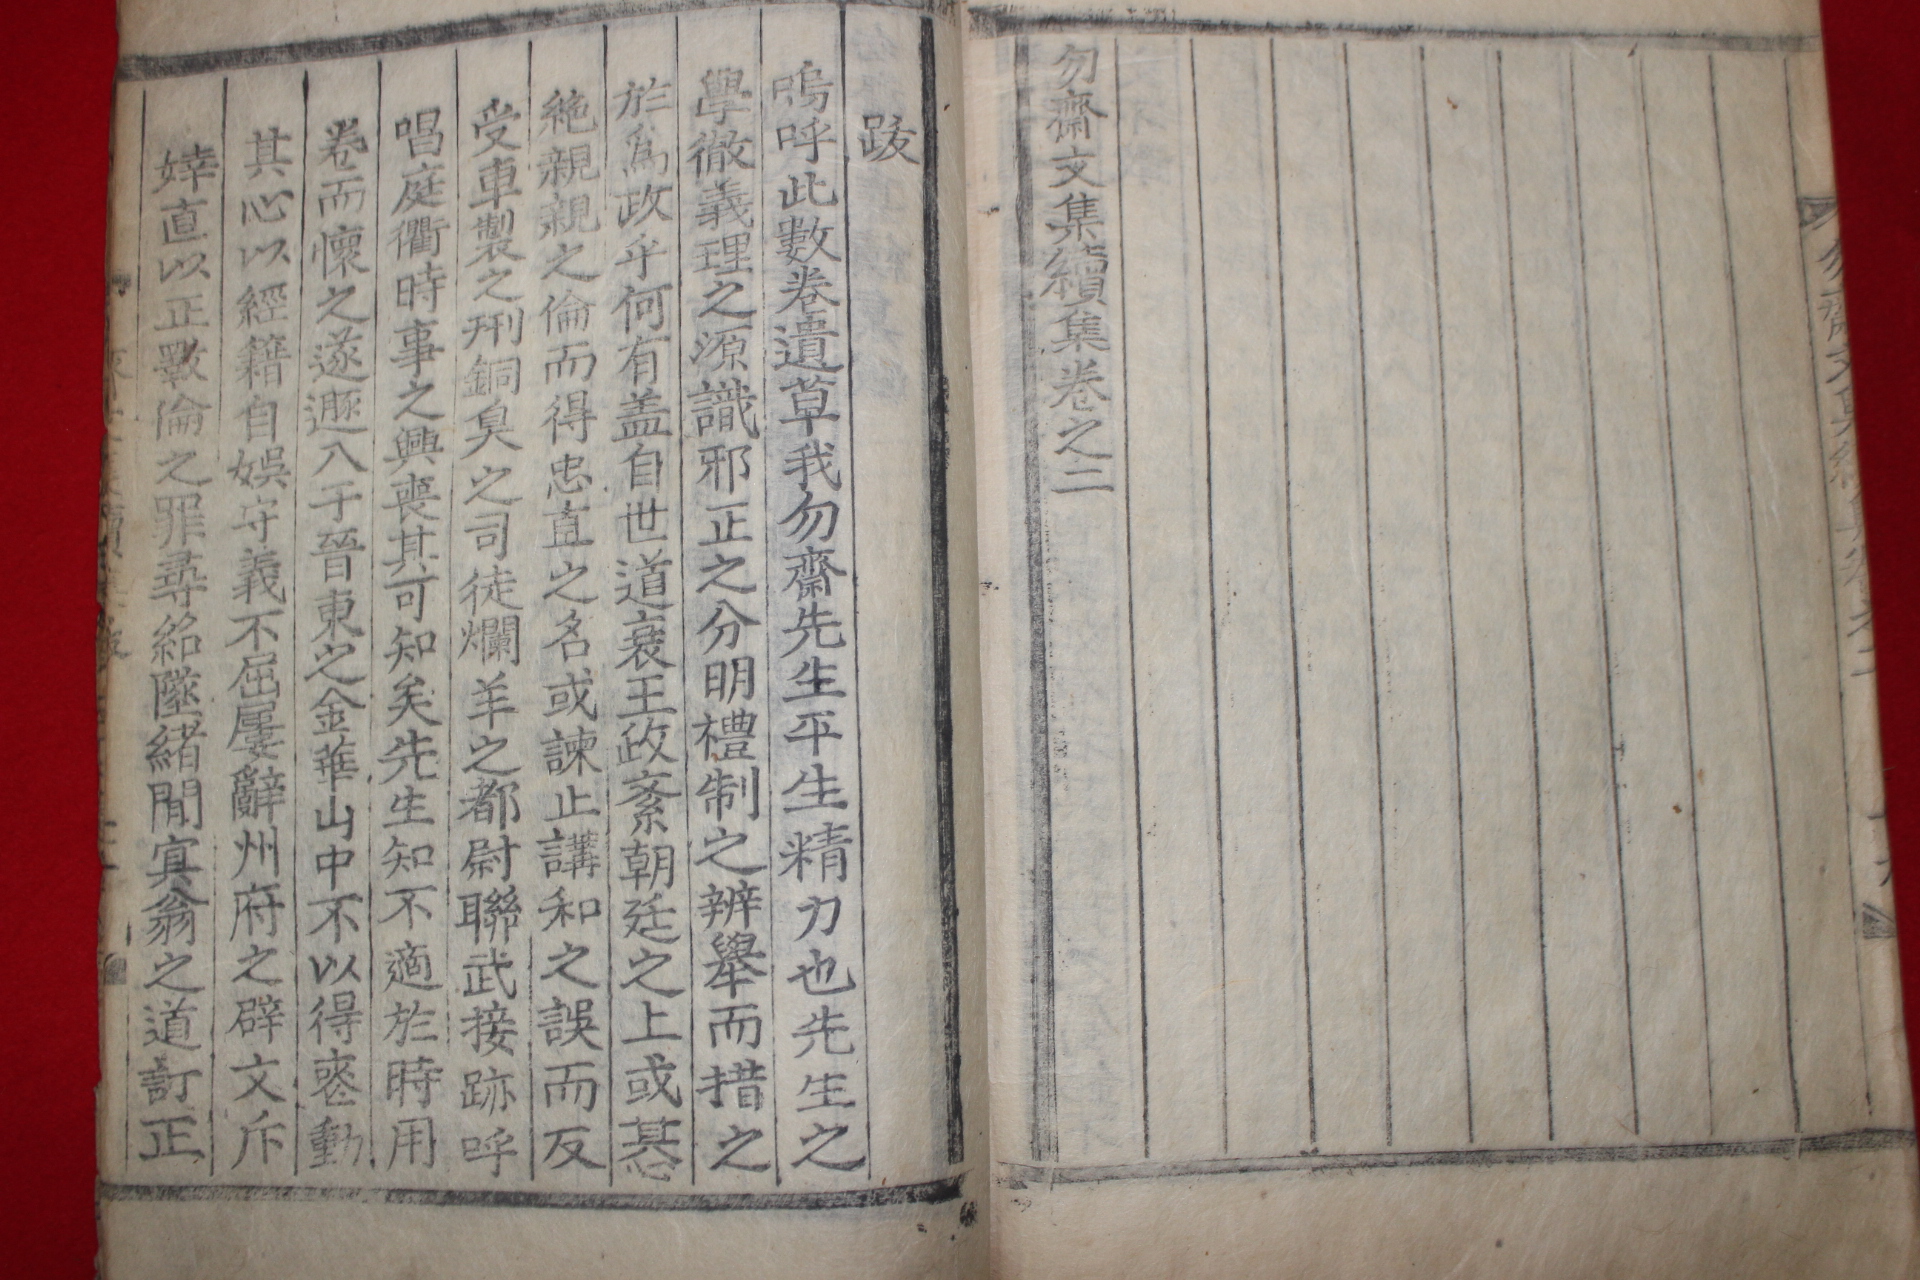 勿齋文集續集卷之二
跋
嗚呼此數卷遺草我勿齋先生平生精力也先生之
學徹義理之源識邪正之分明禮制之辨擧而措之
於爲政乎何有盖自世道衰王政紊朝廷之上或惎
絶親親之倫而得忠直之名或諫止講和之誤而反
受車製之刑銅臭之司徒爛羊之都尉聯武接跡呼
唱庭衢時事之興喪其可知矣先生知不適於時用
卷而懷之遂遯入于晉東之金華山中不以得喪動
其心以經籍自娛守義不屈屢辭州府之辟文斥
婞直以正斁倫之罪尋紹墜緖閒寘翁之道訂正